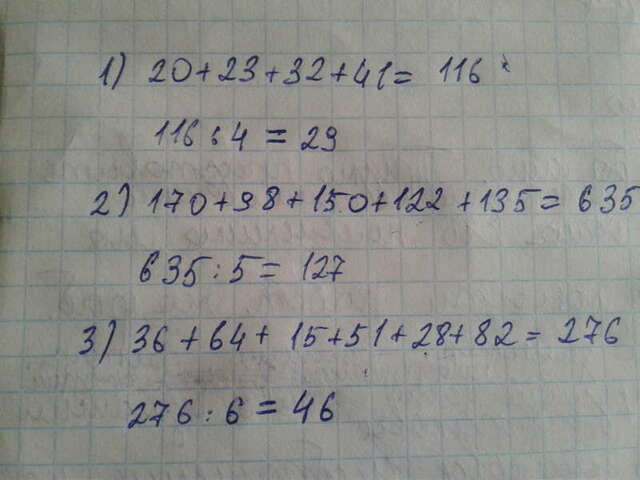 1) 20+23+32+41= 116
116:4 = 29
2) 170+98+150+122+135= 635
635:5= 127
3) 36+64+ 15+51+28+82= 276
276:6 = 46